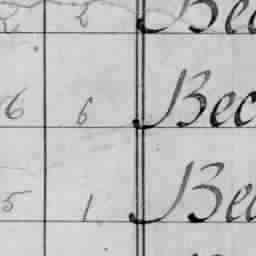 Bec
6 6 Bec
5 1 Bec